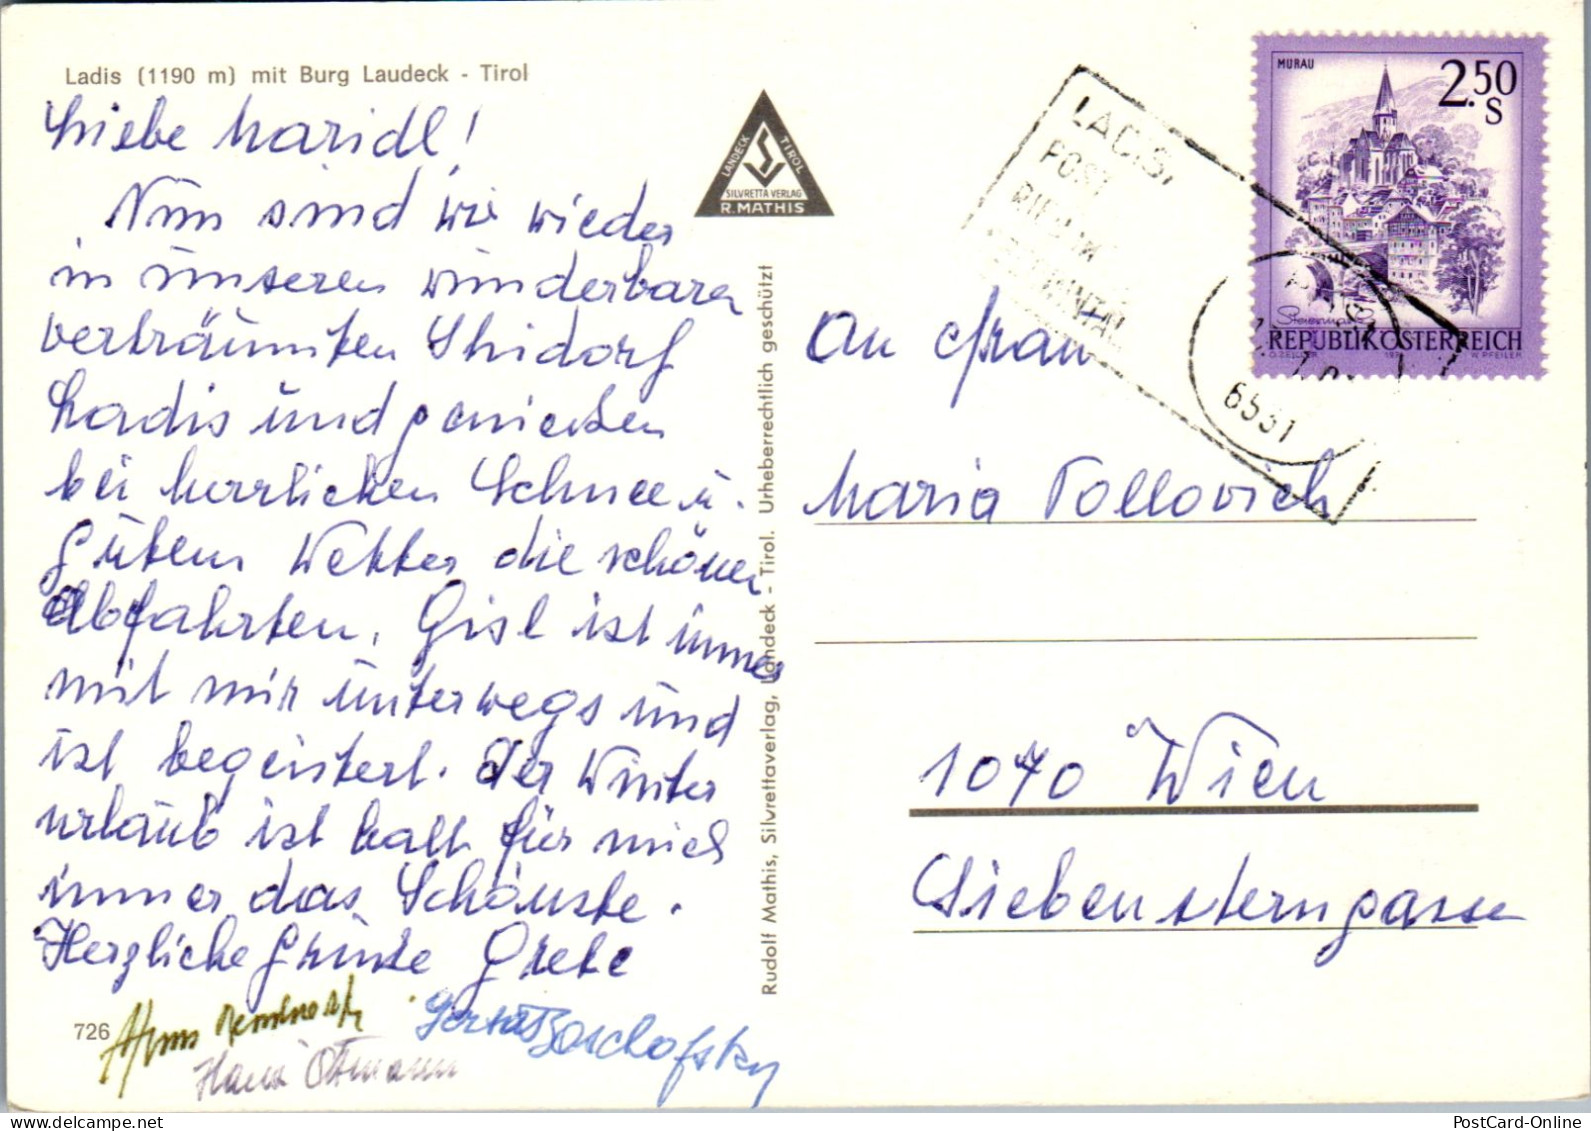 Ladis (1190 m) mit Burg Laudeck - Tirol
Liebe Maridl!
Nun sind wir wieder
in unseren wunderbaren
verträumten Skidorf
Ladis und genießen
bei herrlichen Schnee u.
gutem Wetter die schönen
Abfahrten. Gisl ist immer
mit mir unterwegs und
ist begeistert. Der Winter
urlaub ist halt für mich
immer das Schönste.
Herzliche Grüße Grete
726
Hans Ottmann
LANDECK
TIROL
SILVRETTA VERLAG
R. MATHIS
Rudolf Mathis, Silvrettaverlag, Landeck - Tirol. Urheberrechtlich geschützt
MURAU
2.50
S
Steiermark
REPUBLIK ÖSTERREICH
O. ZEILLER
W. PFEILER
POST
6531
An Frau
Maria Tollovich
1070 Wien
Siebensterngasse
PostCard-Online